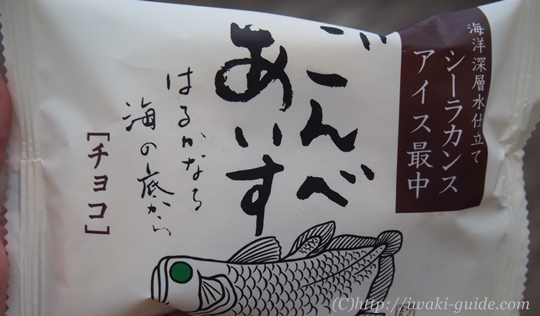 海洋深層水仕立て
シーラカンス
アイス最中
ごんべ
あいす
はるかなる
海の底から
[チョコ]
(C)http://iwaki-guide.com/